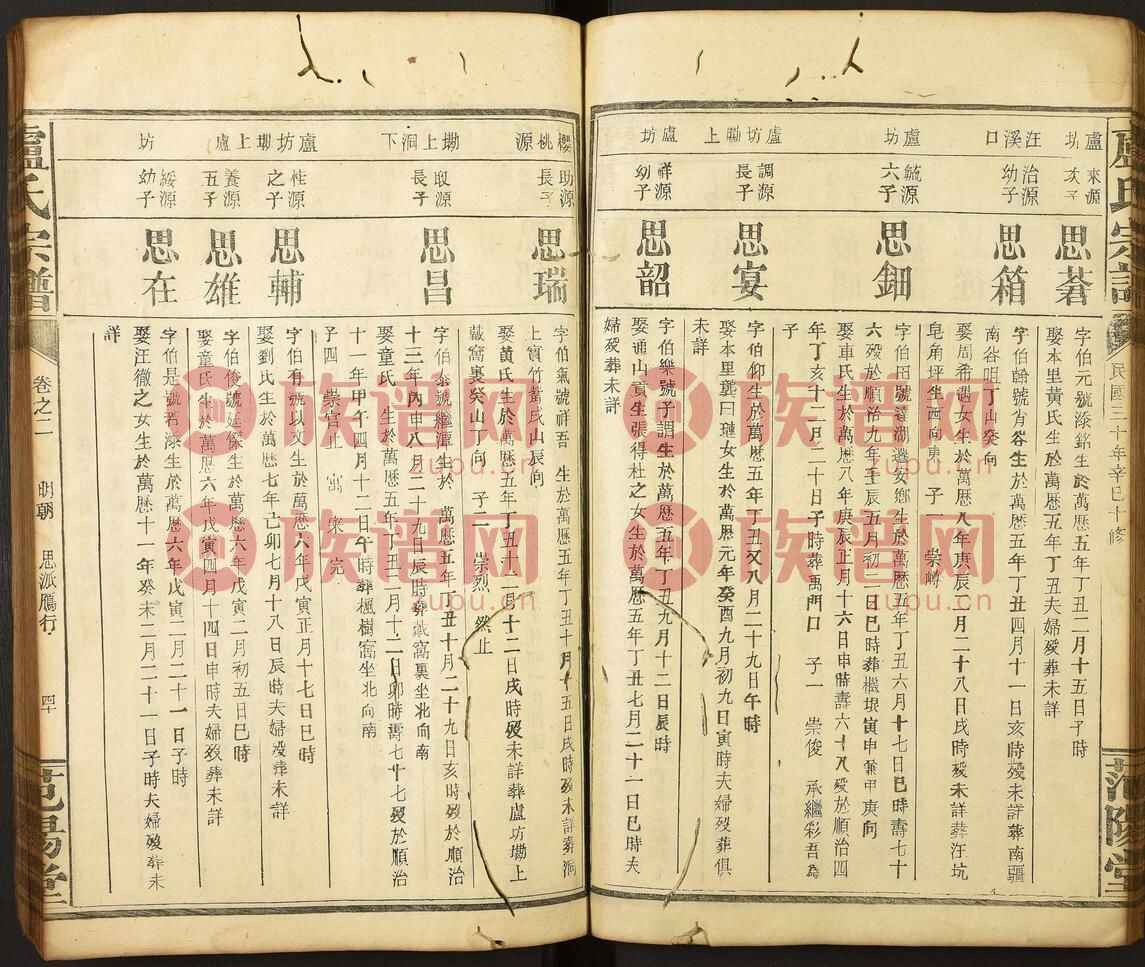 盧氏宗譜
民國三十年辛巳十修
范陽堂
盧坊
來源次子
思蒼
字伯元號漆銘生於萬曆五年丁丑二月十五日子時
娶本里黃氏生於萬曆五年丁丑夫婦歿葬未詳
汪溪口
治源幼子
思箱
字伯翰號肯谷生於萬曆五年丁丑四月十一日亥時歿未詳葬南疆
南谷咀丁山癸向
娶周希遇女生於萬曆八年庚辰二月二十八日戌時歿未詳葬汪坑
皂角坪坐西向東 子一 崇嶹
盧坊
毓源六子
思鈿
字伯田號 湖遷安鄉生於萬曆五年丁丑六月十七日巳時壽七十
六歿於順治九年壬辰五月初二日巳時葬 垠寅申兼甲庚向
娶車氏生於萬曆八年庚辰正月十六日申時壽六十八歿於順治四
年丁亥十二月二十日子時葬禹門口 子一 崇俊 承繼彩吾為
子
盧坊坳上
調源長子
思宴
字伯仰生於萬曆五年丁丑又八月二十九日午時
娶本里龔曰璉女生於萬曆元年癸酉九月初九日寅時夫婦歿葬俱
未詳
盧坊
祥源幼子
思韶
字伯樂號子調生於萬曆五年丁丑九月十二日辰時
娶通山貢生張得杜之女生於萬曆五年丁丑七月二十一日巳時夫
婦歿葬未詳
櫻桃源
助源長子
思瑞
字伯氣號祥吾 生於萬曆五年丁丑十月十五日戌時歿未詳葬洞
上實竹 氏山辰向
娶黃氏生於萬曆五年丁丑十二月十二日戌時歿未詳葬盧坊坳上
藏窩裏癸山丁向 子二 崇烈 然止
坳上洞下
取源長子
思昌
字伯泰號繼潭生於 萬曆五年丁丑十月二十九日亥時歿於順治
十三年丙申八月二十九日辰時葬藏窩裏坐北向南
娶童氏 生於萬曆五年丁丑二月十二日卯時壽七十七歿於順治
十一年甲午四月十二日午時葬楓樹窩坐北向南
子四 崇官止 寓 宋 完
盧坊坳上
性源之子
思輔
字伯有號以文生於萬曆六年戊寅正月十七日巳時
娶劉氏生於萬曆七年己卯七月十八日辰時夫婦歿葬未詳
盧
養源五子
思雄
字伯俊號廷傑生於萬曆六年戊寅二月初五日巳時
娶童氏生於萬曆六年戊寅四月十四日申時夫婦歿葬未詳
坊
綏源幼子
思在
字伯是號若漆生於萬曆六年戊寅二月二十一日子時
娶汪徹之女生於萬曆十一年癸未二月二十一日子時夫婦歿葬未
詳
盧氏宗譜
卷之二
明朝
思派鴈行
四十
范陽堂
族谱网
zupu.cn
族谱网
zupu.cn
族谱网
zupu.cn
族谱网
zupu.cn